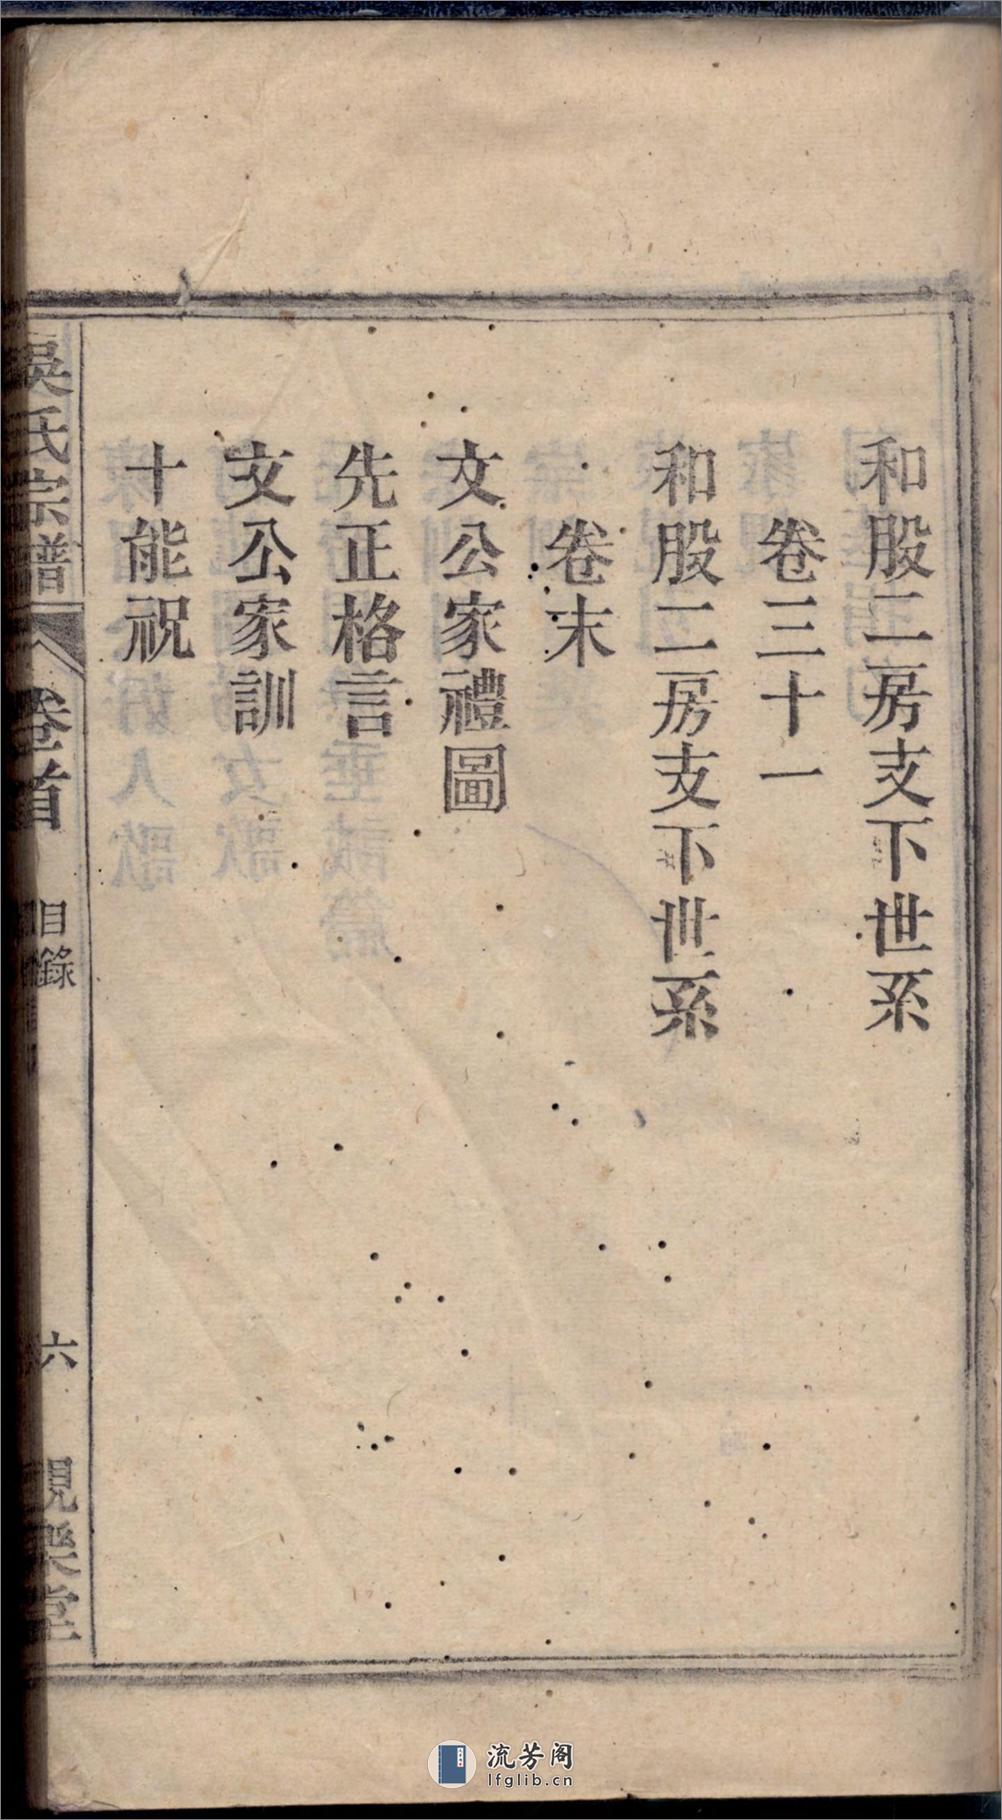 和股二房支下世系
卷三十一
和股二房支下世系
卷末
文公家禮圖
先正格言
文公家訓
十能祝
吳氏宗譜
卷首
目錄
六
堂
流芳阁
lfglib.cn